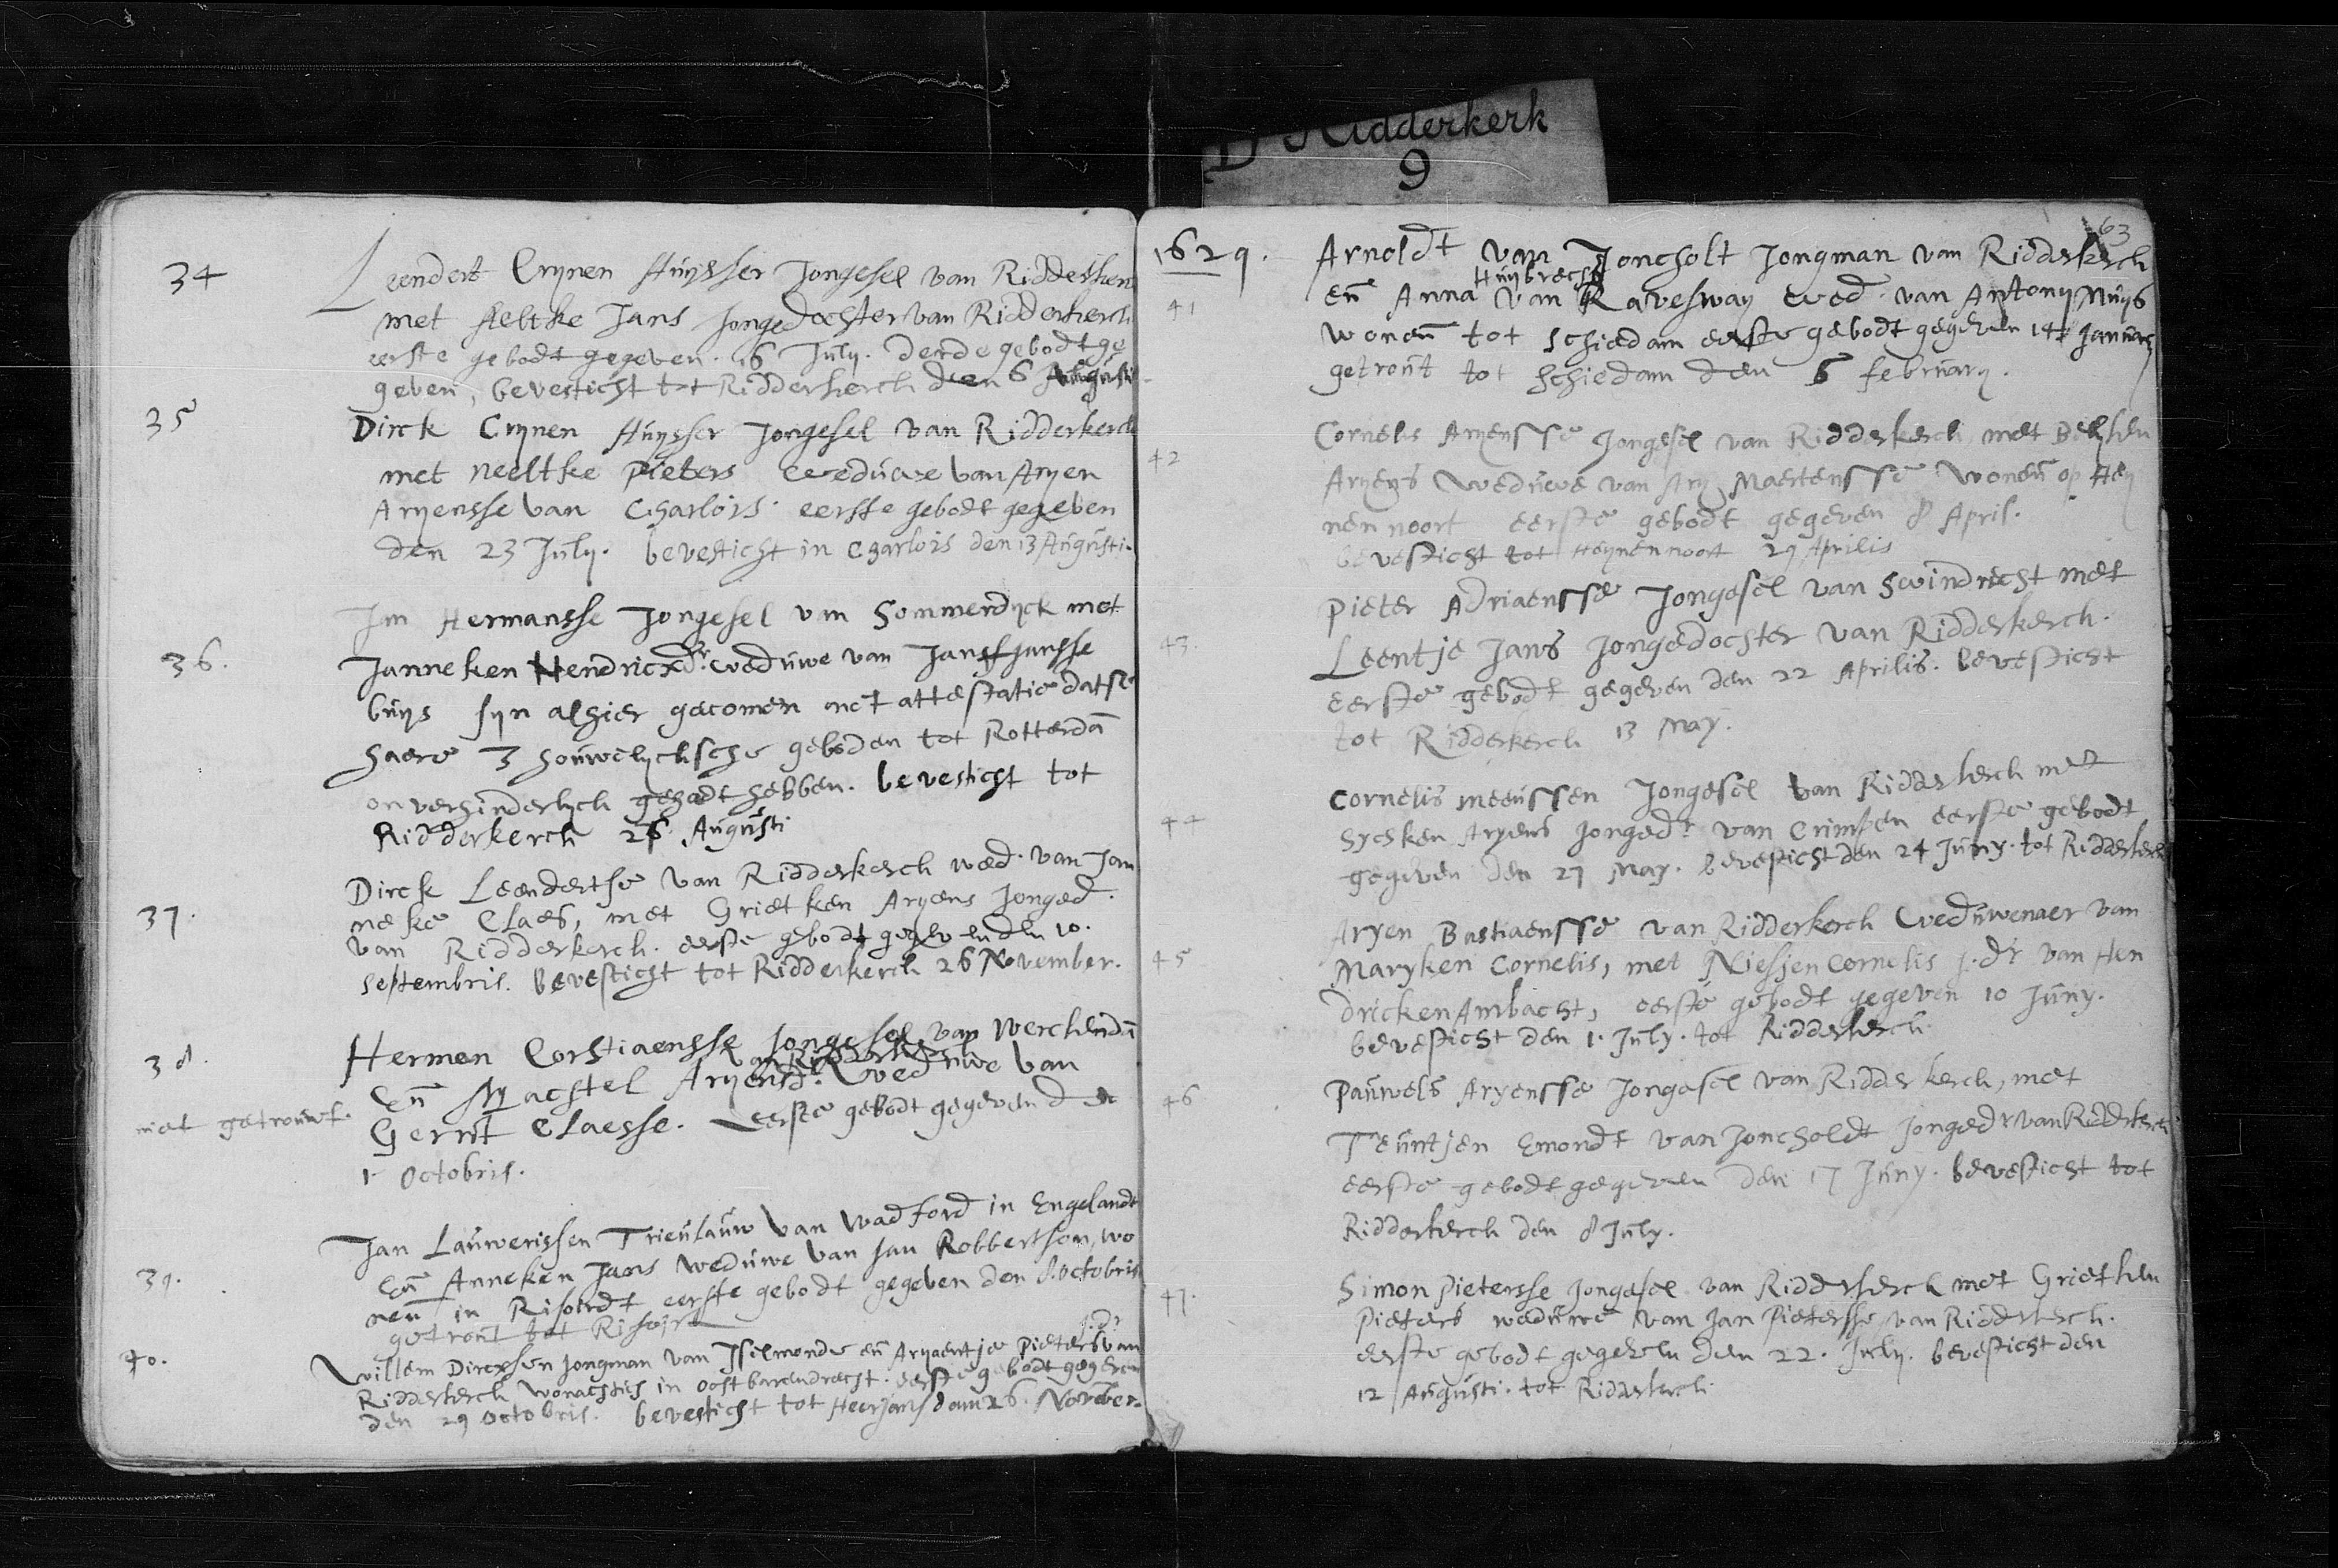 D Ridderkerk
9
34
Leendert Crynen Huysser Jongesel van Ridderkerc
met Neltke Jans Jongedochter van Ridderkerch
eerste gebodt gegeven. 16 July. derde gebodt ge
geven, bevesticht tot Ridderkerch den 6 Augusti
35
Dirck Crynen Huysser Jongesel van Ridderkerch
met neeltke Pieters weduwe van Aryen
Aryensse van Charlois. eerste gebodt gegeven
den 23 July. bevesticht in Charlois den 13 Augusti.
36.
Jan Hermansse Jongesel van Sommerdyck met
Janneken Hendricxdr. weduwe van Jans Jansse
buys syn alhier gecomen met attestatie datse
haere 3 houwelycksche geboden tot Rotterdā
onverhinderlych gehadt hebben. bevesticht tot
Ridderkerch 26 Augusti
37.
Dirck Leendertse van Ridderkerch wed. van Jan
neke Claes, met Grietken Aryens Jonged.
van Ridderkerch. eerste gebodt gegeven den 10.
septembris. bevesticht tot Ridderkerch 26 November.
38.
Hermen Corstiaensse Jongesel van Werckendā
van Ridderkerch
Eñ Machtel Aryensdr. weduwe van
niet getrouwt.
Gerrit Claesse. eerste gebodt gegeven den
1. Octobris.
39.
Jan Lauwerissen Trieulauw van Wadford in Engelandt
Eñ Anneken Jans weduwe van Jan Robbertson, wo
neñ in Risoirdt eerste gebodt gegeven den 8. octobris
getrout tot Risoirt
40.
j.dr
Willem Dircxsen Jongman van Iselmonde eñ Aryaentje Pieters van
Ridderkerch wonachtich in Oostbarendrecht. eerste gebodt gegeven
den 29 Octobris. bevesticht tot Heerjansdam 26. November.
63
1629.
Arnoldt van Joncholt Jongman van Ridderkerch
Huybrechs
41
eñ Anna van Ravesway wed. van Antony Nuys
woneñ tot Schiedam eerste gebodt gegeven 14 January
getrout tot Schiedam den 6 february.
42
Cornelis Aryensse Jongesel van Ridderkerch met
Aryens weduwe van Ary Maertensse woneñ op Hey
nennoort eerste gebodt gegeven 8 April.
bevesticht tot Heynennoort 29 Aprilis
43.
Pieter Adriaensse Jongesel van Swindrecht met
Leentje Jans Jongedochter van Ridderkerch.
eerste gebodt gegeven den 22 Aprilis. bevesticht
tot Ridderkerch 13 May.
44
Cornelis meeussen Jongesel van Ridderkerch met
Sycsken Aryens Jongedr. van Crimpen eerste gebodt
gegeven den 27 May. bevesticht den 24 Juny. tot Ridderkerch
45
Aryen Bastiaensse van Ridderkerch weduwenaer van
Maryken Cornelis, met Niesjen Cornelis j.dr van Hen
dricken Ambacht, eerste gebodt gegeven 10 Juny.
bevesticht den 1. July. tot Ridderkerch.
46
Pauwels Aryensse Jongesel van Ridderkerch, met
Teuntjen Emondt van Joncholdt Jongedr van Ridderkerch
eerste gebodt gegeven den 17 Juny. bevesticht tot
Ridderkerch den 8 July.
47.
Simon Pietersse Jongesel van Ridderkerch met Grietken
Pieters weduwe van Jan Pietersse van Ridderkerch.
eerste gebodt gegeven den 22. July. bevesticht den
12 Augusti. tot Ridderkerch.